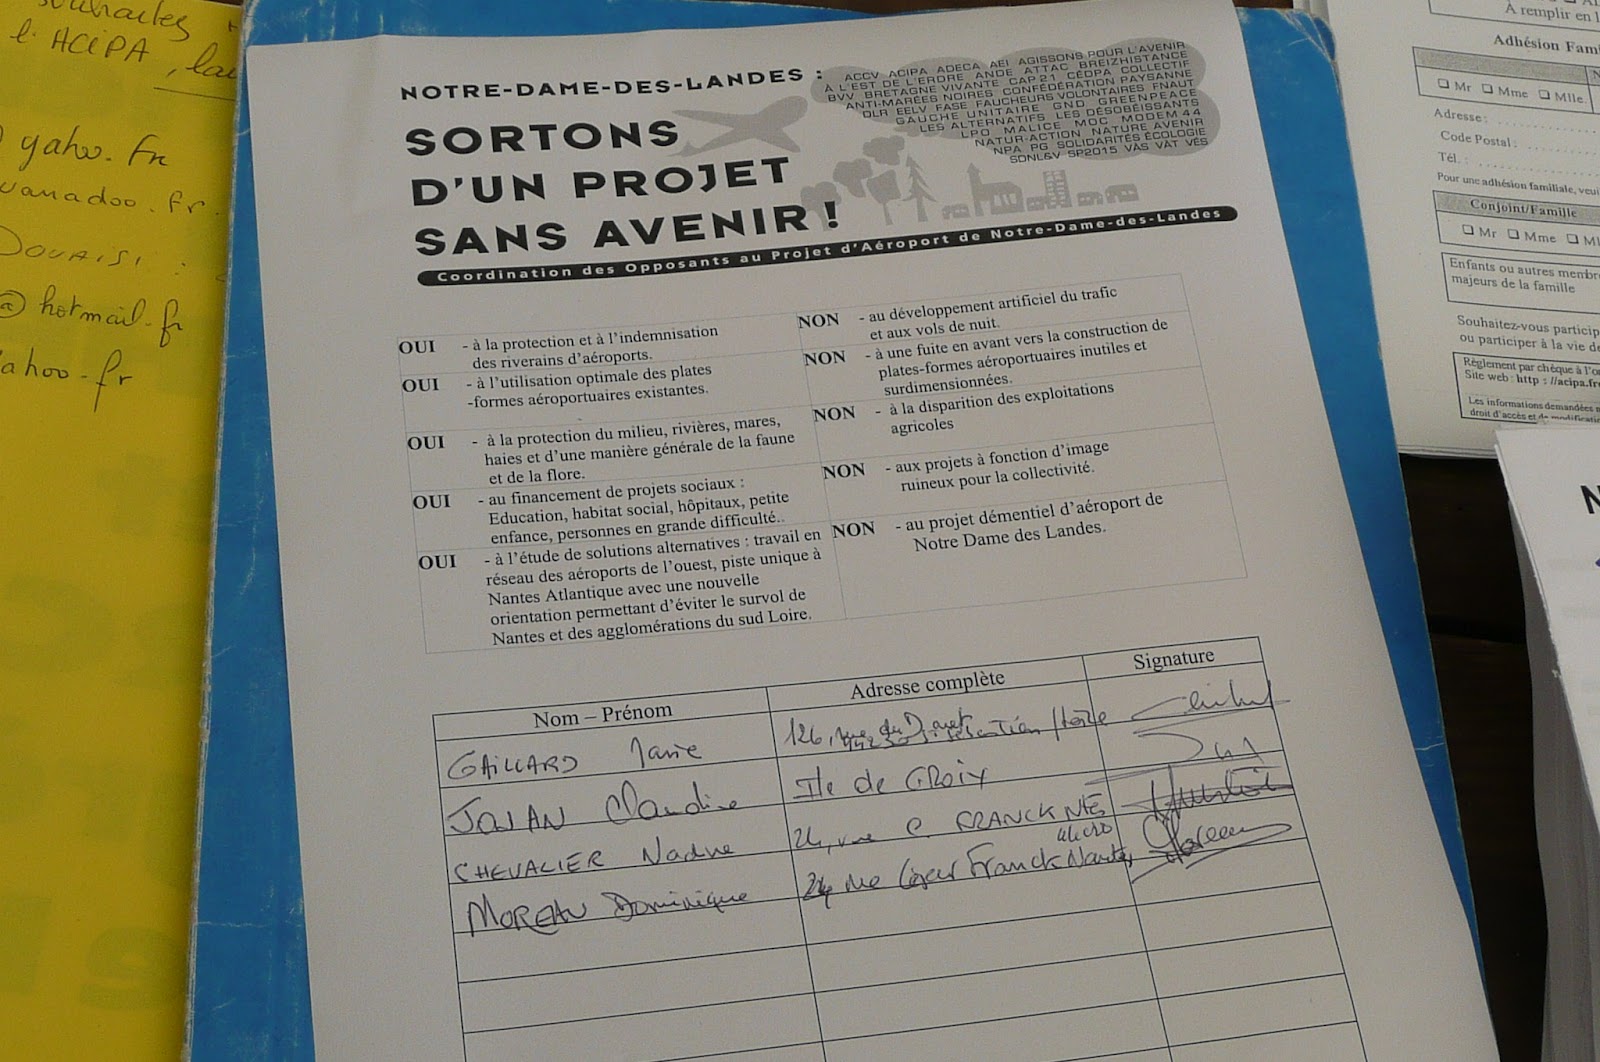 souhaites
l'ACIPA
yahoo.fr
wanadoo.fr
@ hotmail.fr
yahoo.fr
NOTRE-DAME-DES-LANDES :
SORTONS
D'UN PROJET
SANS AVENIR !
ACCV ACIPA ADECA AEI AGISSONS POUR L'AVENIR
À L'EST DE L'ERDRE ANDE ATTAC BREIZHISTANCE
BVV BRETAGNE VIVANTE CAP 21 CÉDPA COLLECTIF
ANTI-MARÉES NOIRES CONFÉDÉRATION PAYSANNE
DLR EELV FASE FAUCHEURS VOLONTAIRES FNAUT
GAUCHE UNITAIRE GND GREENPEACE
LES ALTERNATIFS LES DÉSOBÉISSANTS
LPO MALICE MDC MODEM 44
NATUR-ACTION NATURE AVENIR
NPA PG SOLIDARITÉS ÉCOLOGIE
SDNL&V SP2015 VAS VAT VÉS
Coordination des Opposants au Projet d'Aéroport de Notre-Dame-des-Landes
OUI - à la protection et à l'indemnisation
des riverains d'aéroports.
OUI - à l'utilisation optimale des plates
-formes aéroportuaires existantes.
OUI - à la protection du milieu, rivières, mares,
haies et d'une manière générale de la faune
et de la flore.
OUI - au financement de projets sociaux :
Education, habitat social, hôpitaux, petite
enfance, personnes en grande difficulté..
OUI - à l'étude de solutions alternatives : travail en
réseau des aéroports de l'ouest, piste unique à
Nantes Atlantique avec une nouvelle
orientation permettant d'éviter le survol de
Nantes et des agglomérations du sud Loire.
NON - au développement artificiel du trafic
et aux vols de nuit.
NON - à une fuite en avant vers la construction de
plates-formes aéroportuaires inutiles et
surdimensionnées.
NON - à la disparition des exploitations
agricoles
NON - aux projets à fonction d'image
ruineux pour la collectivité.
NON - au projet démentiel d'aéroport de
Notre Dame des Landes.
Nom – Prénom Adresse complète Signature
GAILLARD Marie 126, rue du
JOUAN Claudine Ile de GROIX
CHEVALIER Nadine 24, rue C. FRANCK NTES
MOREAU Dominique 24 rue César Franck Nantes
À remplir en
Adhésion Fam
Mr Mme Mlle
Adresse :
Code Postal :
Tél. :
Pour une adhésion familiale,
Conjoint/Famille
Mr Mme
Enfants ou autres
majeurs de la famille
Souhaitez-vous
ou participer à la vie
Règlement par chèque à
Site web : http : //acipa.
Les informations demandées
droit d'accès et de